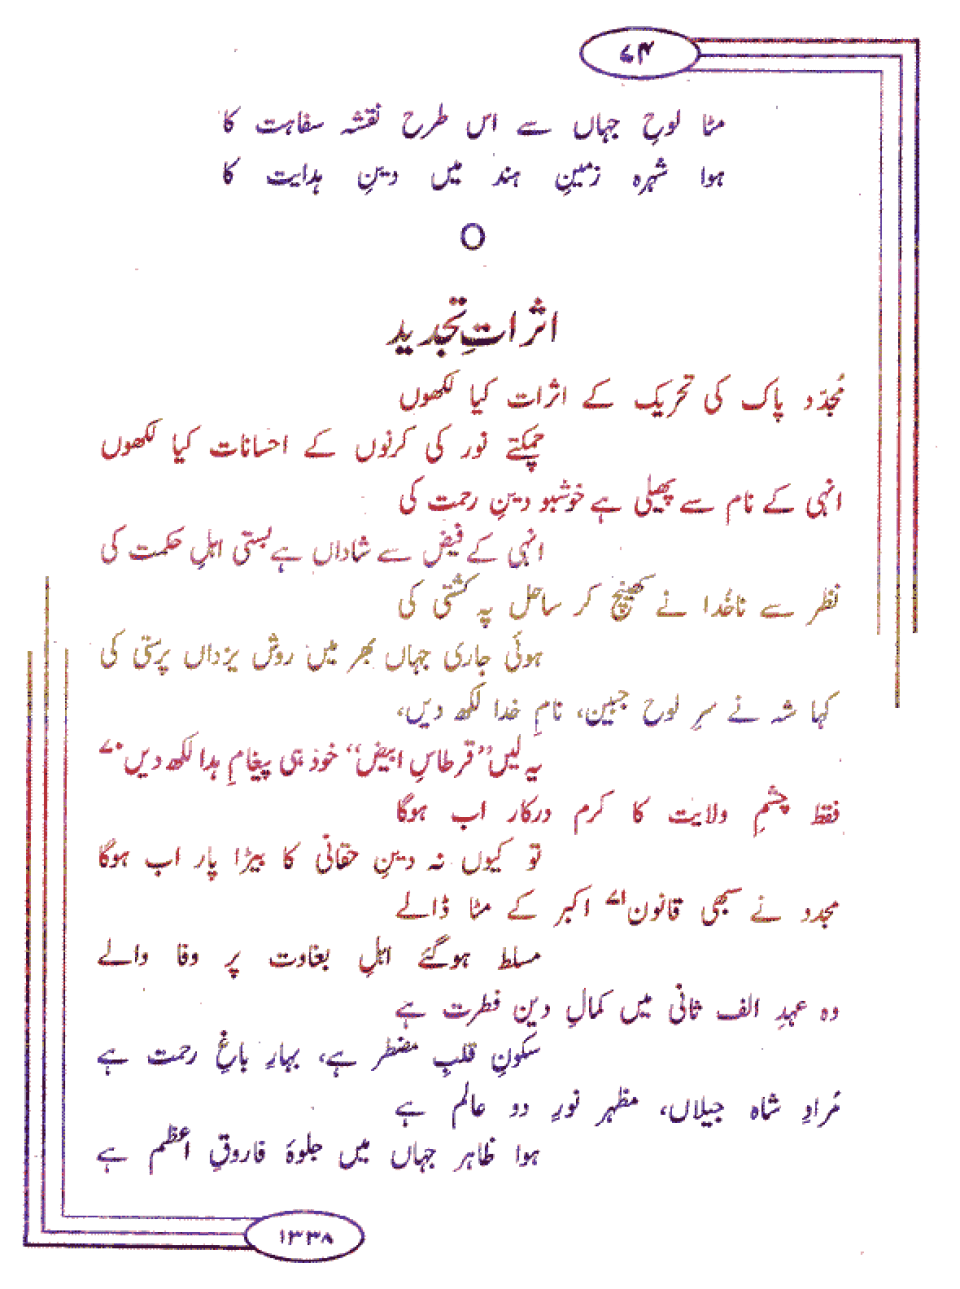 ۷۴
مٹا لوحِ جہاں سے اس طرح نقشہ سفاہت کا
ہوا شہرہ زمینِ ہند میں دینِ ہدایت کا
O
اثراتِ تجدید
مُجدّد پاک کی تحریک کے اثرات کیا لکھوں
چمکتے نور کی کرنوں کے احسانات کیا لکھوں
انہی کے نام سے پھیلی ہے خوشبو دینِ رحمت کی
انہی کے فیض سے شاداں ہے بستی اہلِ حکمت کی
نظر سے ناخُدا نے کھینچ کر ساحل پہ کشتی کی
ہوئی جاری جہاں بھر میں روش یزداں پرستی کی
کہا شہ نے سرِ لوح جبین، نامِ خدا لکھ دیں،
یہ لیں "قرطاسِ ابیض" خود ہی پیغامِ ہدا لکھ دیں ۷۰
فقط چشمِ ولایت کا کرم درکار اب ہوگا
تو کیوں نہ دینِ حقانی کا بیڑا پار اب ہوگا
مجدد نے سبھی قانون ۷۱ اکبر کے مٹا ڈالے
مسلط ہوگئے اہلِ بغاوت پر وفا والے
وہ عہدِ الف ثانی میں کمالِ دینِ فطرت ہے
سکونِ قلبِ مضطر ہے، بہارِ باغِ رحمت ہے
مُرادِ شاہ جیلاں، مظہر نورِ دو عالم ہے
ہوا ظاہر جہاں میں جلوۂ فاروقِ اعظم ہے
۱۳۳۸